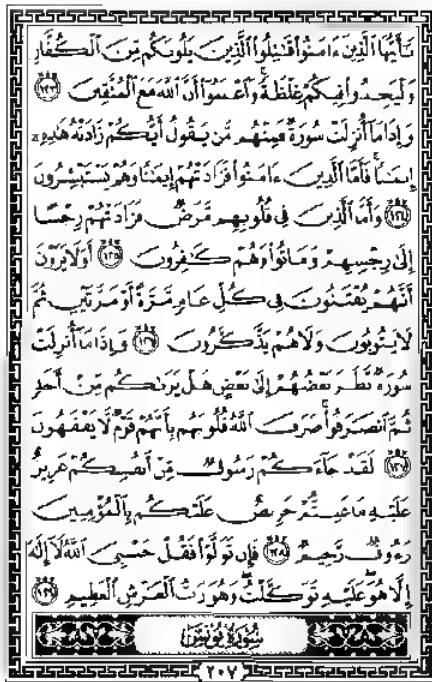 يَٰٓأَيُّهَا ٱلَّذِينَ ءَامَنُوا۟ قَٰتِلُوا۟ ٱلَّذِينَ يَلُونَكُم مِّنَ ٱلْكُفَّارِ
وَلْيَجِدُوا۟ فِيكُمْ غِلْظَةً ۚ وَٱعْلَمُوٓا۟ أَنَّ ٱللَّهَ مَعَ ٱلْمُتَّقِينَ ١٢٣
وَإِذَا مَآ أُنزِلَتْ سُورَةٌ فَمِنْهُم مَّن يَقُولُ أَيُّكُمْ زَادَتْهُ هَٰذِهِۦٓ
إِيمَٰنًا ۚ فَأَمَّا ٱلَّذِينَ ءَامَنُوا۟ فَزَادَتْهُمْ إِيمَٰنًا وَهُمْ يَسْتَبْشِرُونَ
١٢٤ وَأَمَّا ٱلَّذِينَ فِى قُلُوبِهِم مَّرَضٌ فَزَادَتْهُمْ رِجْسًا
إِلَىٰ رِجْسِهِمْ وَمَاتُوا۟ وَهُمْ كَٰفِرُونَ ١٢٥ أَوَلَا يَرَوْنَ
أَنَّهُمْ يُفْتَنُونَ فِى كُلِّ عَامٍ مَّرَّةً أَوْ مَرَّتَيْنِ ثُمَّ
لَا يَتُوبُونَ وَلَا هُمْ يَذَّكَّرُونَ ١٢٦ وَإِذَا مَآ أُنزِلَتْ
سُورَةٌ نَّظَرَ بَعْضُهُمْ إِلَىٰ بَعْضٍ هَلْ يَرَىٰكُم مِّنْ أَحَدٍ
ثُمَّ ٱنصَرَفُوا۟ ۚ صَرَفَ ٱللَّهُ قُلُوبَهُم بِأَنَّهُمْ قَوْمٌ لَّا يَفْقَهُونَ
١٢٧ لَقَدْ جَآءَكُمْ رَسُولٌ مِّنْ أَنفُسِكُمْ عَزِيزٌ
عَلَيْهِ مَا عَنِتُّمْ حَرِيصٌ عَلَيْكُم بِٱلْمُؤْمِنِينَ
رَءُوفٌ رَّحِيمٌ ١٢٨ فَإِن تَوَلَّوْا۟ فَقُلْ حَسْبِىَ ٱللَّهُ لَآ إِلَٰهَ
إِلَّا هُوَ ۖ عَلَيْهِ تَوَكَّلْتُ ۖ وَهُوَ رَبُّ ٱلْعَرْشِ ٱلْعَظِيمِ ١٢٩
سُورَةُ يُونُسَ
٢٠٧